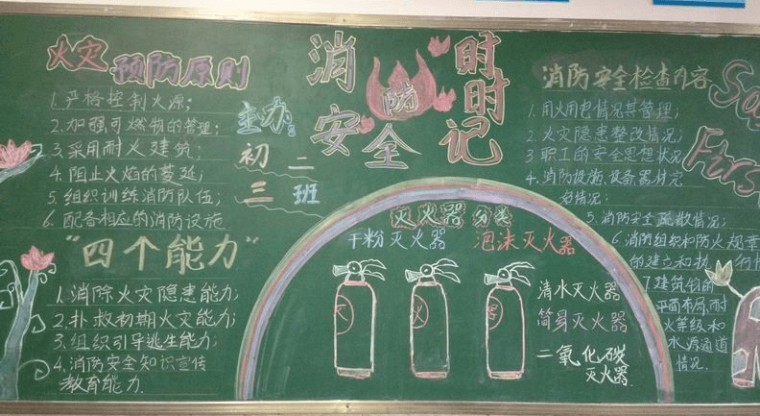 火灾
预防原则
1. 严格控制火源;
2. 加强可燃物的管理;
3. 采用耐火建筑;
4. 阻止火焰的蔓延;
5. 组织训练消防队伍;
6. 配备相应的消防设施
"四个能力"
1. 消除火灾隐患能力;
2. 扑救初期火灾能力;
3. 组织引导逃生能力;
4. 消防安全知识宣传
教育能力.
主办:
初二
三班
消防
安全
时时记
灭火器分类
干粉灭火器
泡沫灭火器
灭
火
器
清水灭火器
简易灭火器
二氧化碳
灭火器.
消防安全检查内容
1. 用火用电情况其管理;
2. 火灾隐患整改情况;
3. 职工的安全思想状况
4. 消防设施、设备器材完
好情况:
5. 消防安全疏散情况;
6. 消防组织和防火规章
的建立和执
7. 建筑物的
平面布局,耐
火等级和
水源通道
情况.
Sa
First